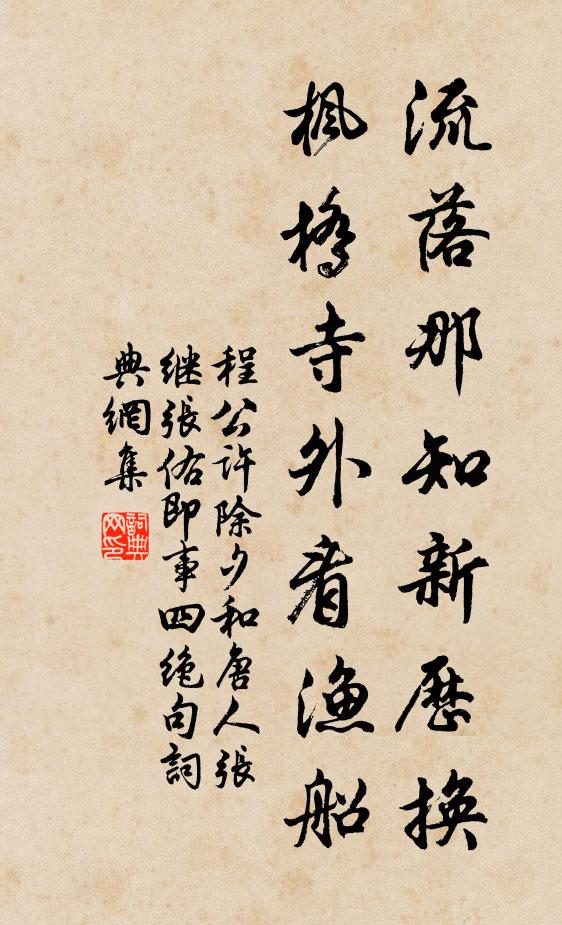 流落那知新歷換
楓橋寺外看漁船
程公許除夕和唐人張
继張佑即事四绝句詞
典網集
詞典網印